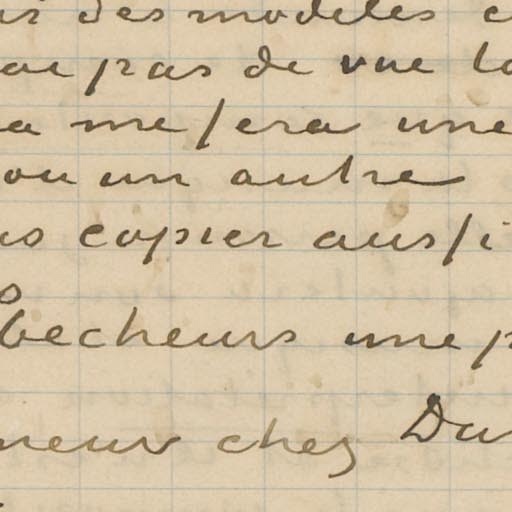 des modeles
pas de vue
me fera une
ou un autre
copier aussi
becheurs une
neur chez Du